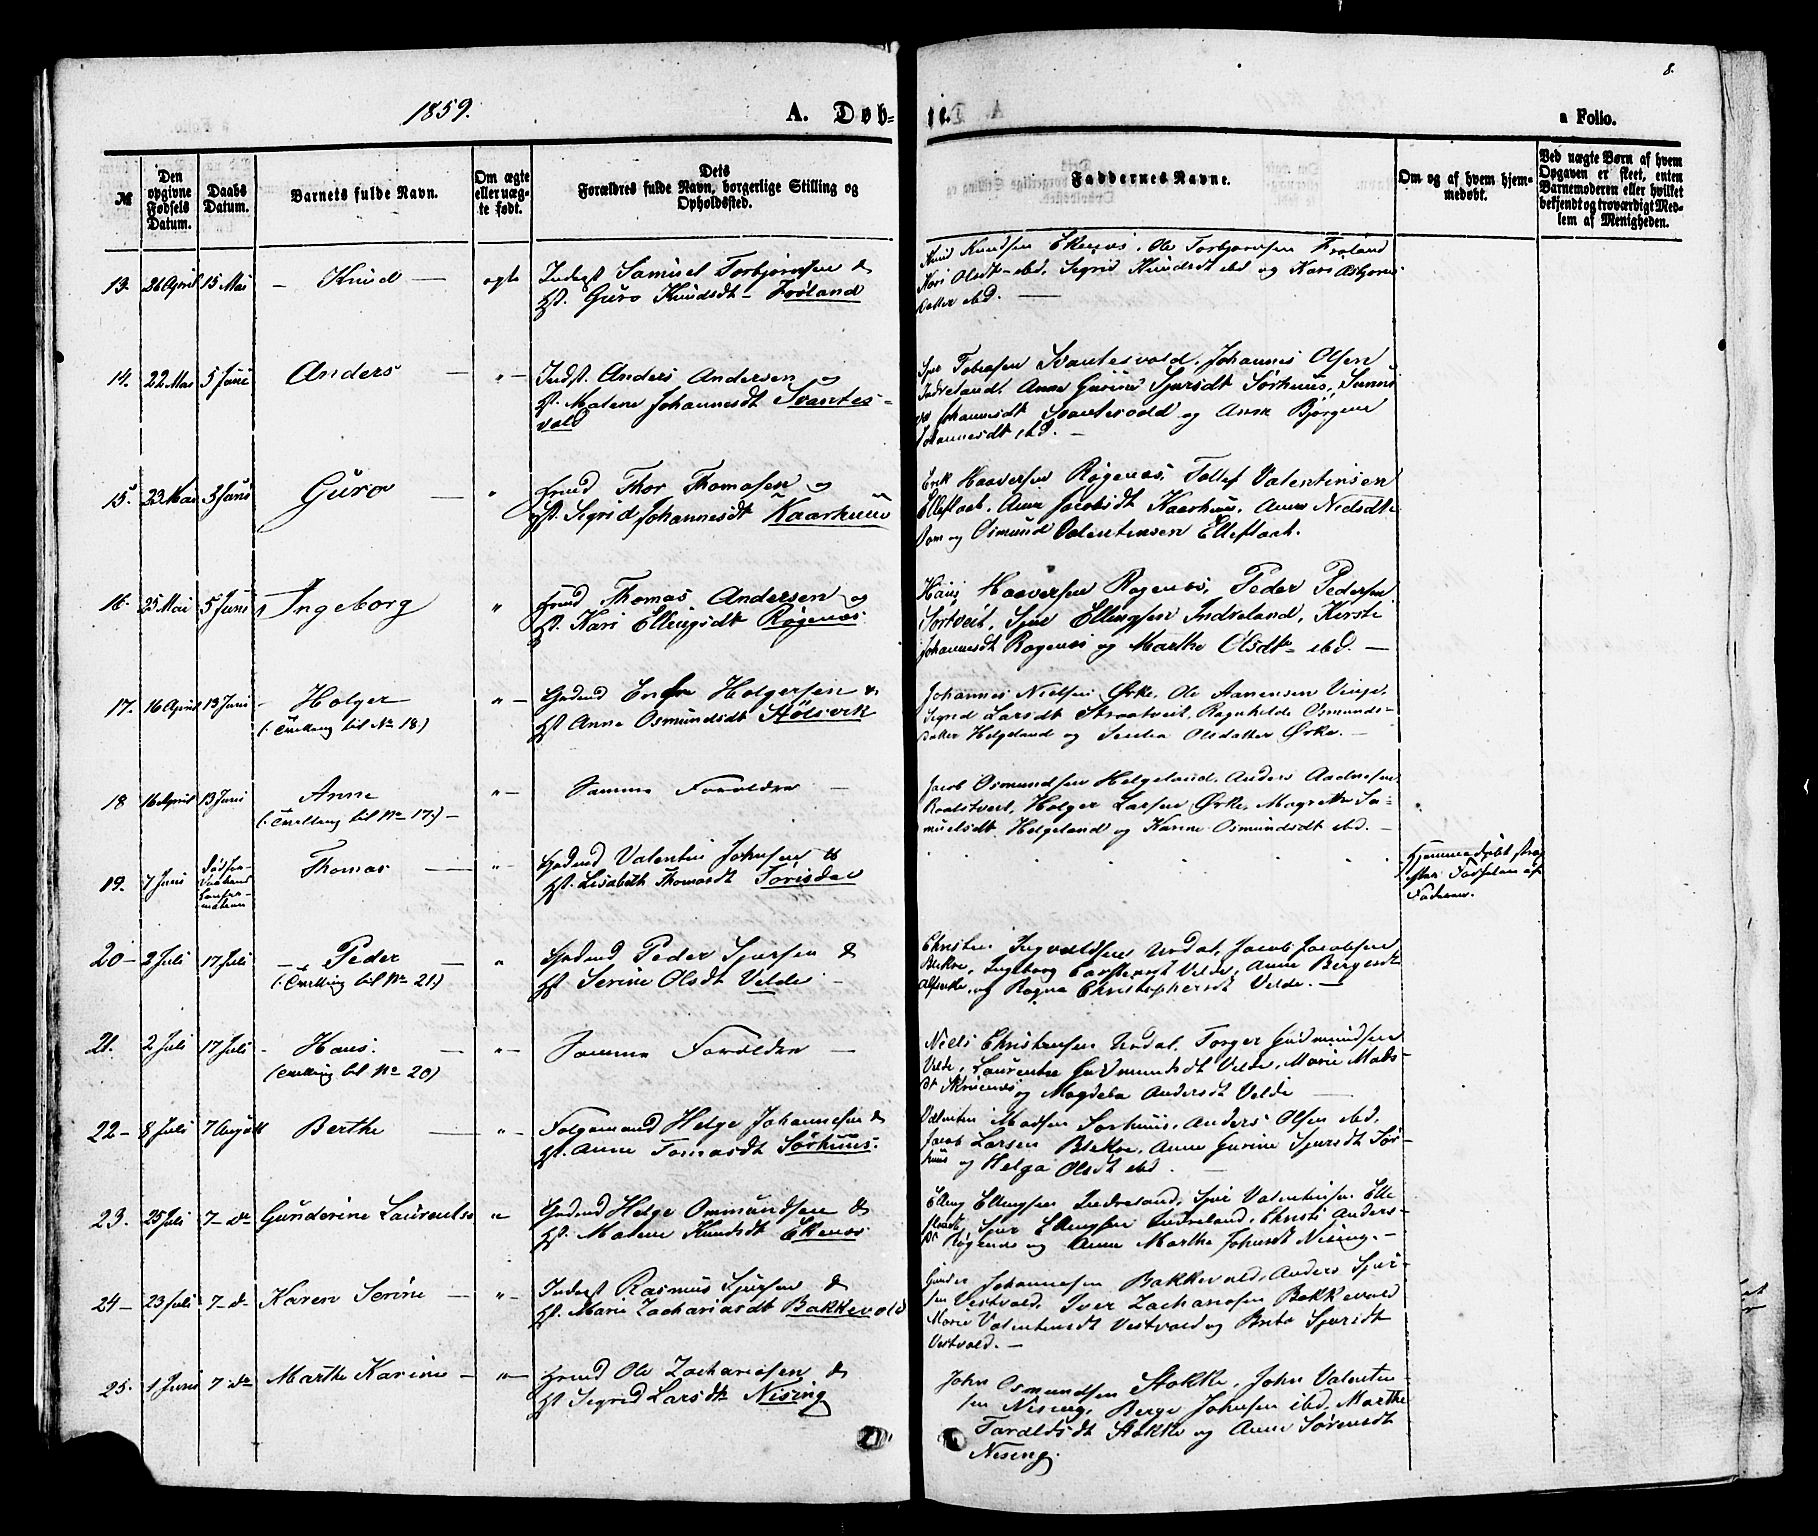 8.
1859.
A. Døb-
te.
a Folio.
№
Den opgivne Fødsels Datum.
Daabs Datum.
Barnets fulde Navn.
Om ægte eller uægte født.
Dets Forældres fulde Navn, borgerlige Stilling og Opholdssted.
Faddernes Navne.
Om og af hvem hjemmedøbt.
Ved uægte Børn af hvem Opgaven er skeet, enten Barnemoderen eller hvilket bekjendt og troværdigt Medlem af Menigheden.
13. 26 April 15 Mai – Knud – ægte Inderst Samuel Torbjørnsen &
Hst. Guro Knudsdt – Frøland
Knud Knudsen Ekenæs, Ole Torbjørnsen Frøland
Kari Olsdt – ibd, Sigrid Knudsdt ibd og Kari Asbjørns
datter ibd. –
14. 22 Mai 5 Juni Anders – " – Indst. Anders Andersen og
Hst. Malene Johannesdt Svartes-
vald
Sjur Tobiasen Svartesvold, Johannes Olsen
Indreland, Anne Gurine Sjursdt Sørhuus, Sunni
va Johannesdt Svartesvold og Anne Bjørgene
Johannesdt ibd. –
15. 23 Mai 3 Juni Guro – " Hmd Thor Thomasen og
Hst. Sigrid Johannesdt Kaarhuus
Erik Haaversen Røgenæs, Tollef Valentinsen
Elleflaat, Anne Jacobsdt Kaarhuus, Anna Nedsdt
Dom og Osmund Valentinsen Elleflaat.
16. 25 Mai 5 Juni Ingeborg " Hmd Thomas Andersen og
Hst. Kari Ellingsdt Røgenæs.
Hans Haaversen Røgenæs, Peder Pedersen
Sørtveit, Sjur Ellingsen Indreland, Kirsti
Johannesdt Røgenæs og Marthe Olsdt – ibd. –
17. 16 April 13 Juni – Holger " – Gadmd Endre Holgersen &
(: Tvilling til No 18)
Hst Anne Osmundsdt Stölsvik
Johannes Nielsen Ørke, Ole Aanensen Vinje,
Sigrid Larsdt Straatveit, Ragnhilde Osmunds-
datter Helgeland og Senta Olsdatter Ørke. –
18 16 April 13 Juni Anne " – Samme Forældre –
(: Tvilling til No 17:) –
Jacob Osmundsen Helgeland, Anders Aadnesen
Raaltveit, Holger Larsen Ørke, Magrethe Sa-
muelsdt. Helgeland og Karine Osmundsdt ibd. –
19. 7 Juni Thomas – " – Gadmd Valentin Johnsen &
Hst. Lisabeth Thomasdt Torisdal
Hjemmedöbt strax
efter Fødselen af
Faderen.
20 – 2 Juli 17 Juli – Peder – " Gadmd Peder Sjursen &
(: Tvilling til No 21:)
Hst Serine Olsdt Velde –
Christen Ingvaldsen Urdal, Jacob Jacobsen
Blekre, Ingeborg Carstensdt Velde, Anne Bergesdt
og Ragna Christophersdt Velde. –
21. 2 Juli 17 Juli – Hans. – " – Samme Forældre –
(Tvilling til No 20)
Niels Christensen Urdal, Torger Gudmundsen
Velde, Laurentze Gudmundsdt Velde, Marie Mads-
dt og Magdela Andersdt Velde –
22 – 8 Juli 7 August Berthe – " – Folgemand Helge Johannesen &
Hst. Anne Tomasdt Sørhuus.
Valentin Madsen Sørhuus, Anders Olsen ibd,
Jacob Larsen Blekre, Anne Gurine Sjursdt Sør-
huus og Helga Olsdt ibd. –
23. 25 Juli 7 – do Gunderine Laurentse " Gadmd Helge Ommundsen &
Hst. Malene Knudsdt Ekenæs
Elling Ellingsen Indreland, Sjur Valentinsen Elle
flaat, Sjur Ellingsen Indreland, Christi Anders-
dt Røgenæs og Anne Marthe Johnsdt Nising. –
24 – 23 Juli 7 – do Karen Serine – " – Inderst Rasmus Sjursen &
Hst. Marie Zachariasdt Bakkevold
Gunder Johannesen Bakkevold, Anders Sjur-
sen Vestvold, Iver Zachariasen Bakkevold
Marie Valentinsdt Vestvold og Berta Sjursdt
Vestvold. –
25. 1 Juni 7 – do Marthe Karine – " – Hmd Ole Zachariesen &
Hst Sigrid Larsdt Nising
John Osmundsen Stokke, John Valentin-
sen Nising, Berge Johnsen ibd, Marthe
Taraldsdt Stokke og Anne Sørensdt
Nising.